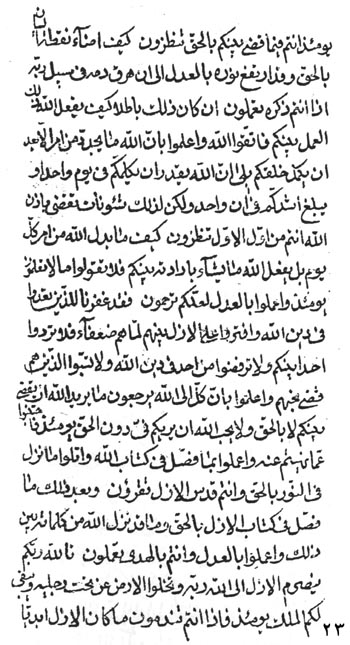 يومئذ انتم فيما قضى بينكم بالحق تنظرون كيف امنآء نقطة البيان
بالحق وقد ارفع نوره بالعدل الى ان هرق دمه فى سبيل ربه
اذا انتم ذكره تعملون ان كان ذلك باطلا كيف يفعل الله ذلك
العمل بينكم فاتقوا الله واعلموا بان الله ما يجدد من امر الا بعد
ان يكمل خلقكم بلى ان الله يقدر ان يكملكم فى يوم واحد او
يبلغ اشدكم فى ان واحد ولكن لذلك شئونات تقضى باذن
الله انتم من اول الاول تنظرون كيف ما بدل الله من امر كل
يوم بل يفعل الله ما يشآء بارادته بينكم فلا تقولوا ما لا تعلمون
يومئذ واعلموا بالعدل لعلكم ترحمون فقد غفرنا للذين بعدوا
فى دين الله وافتروا على الازل بينهم لما هم ضعفآء فلا تردوا
احدا بينكم ولا ترفضوا من احد فى دين الله ولا تسبوا الذين هم
قضى نحبهم واعلموا بان كل الى الله يرجعون ما يريد الله ان يقضى
بينكم الا بالحق ولا يحب الله ان يريكم فى دون الحق يومئذ فاحذروا
عما نهيتم عنه واعلموا بما فصل فى كتاب الله واتلوا ما نزل
فى النور بالحق وانتم قدس الازل تقرؤن وبعد ذلك ما
فصل فى كتاب الازل بالحق وما قد نزل الله من كلماته بين
ذلك واعملوا بالعدل وانتم بالهدى تعملون تالله ربكم
يصرم الازل الى الله ربه وتخلوا الارض عن تحت رجليه ويبقى
لكم الملك يومئذ فاذا انتم تندمون ما كان الازل ابديا
٢٣